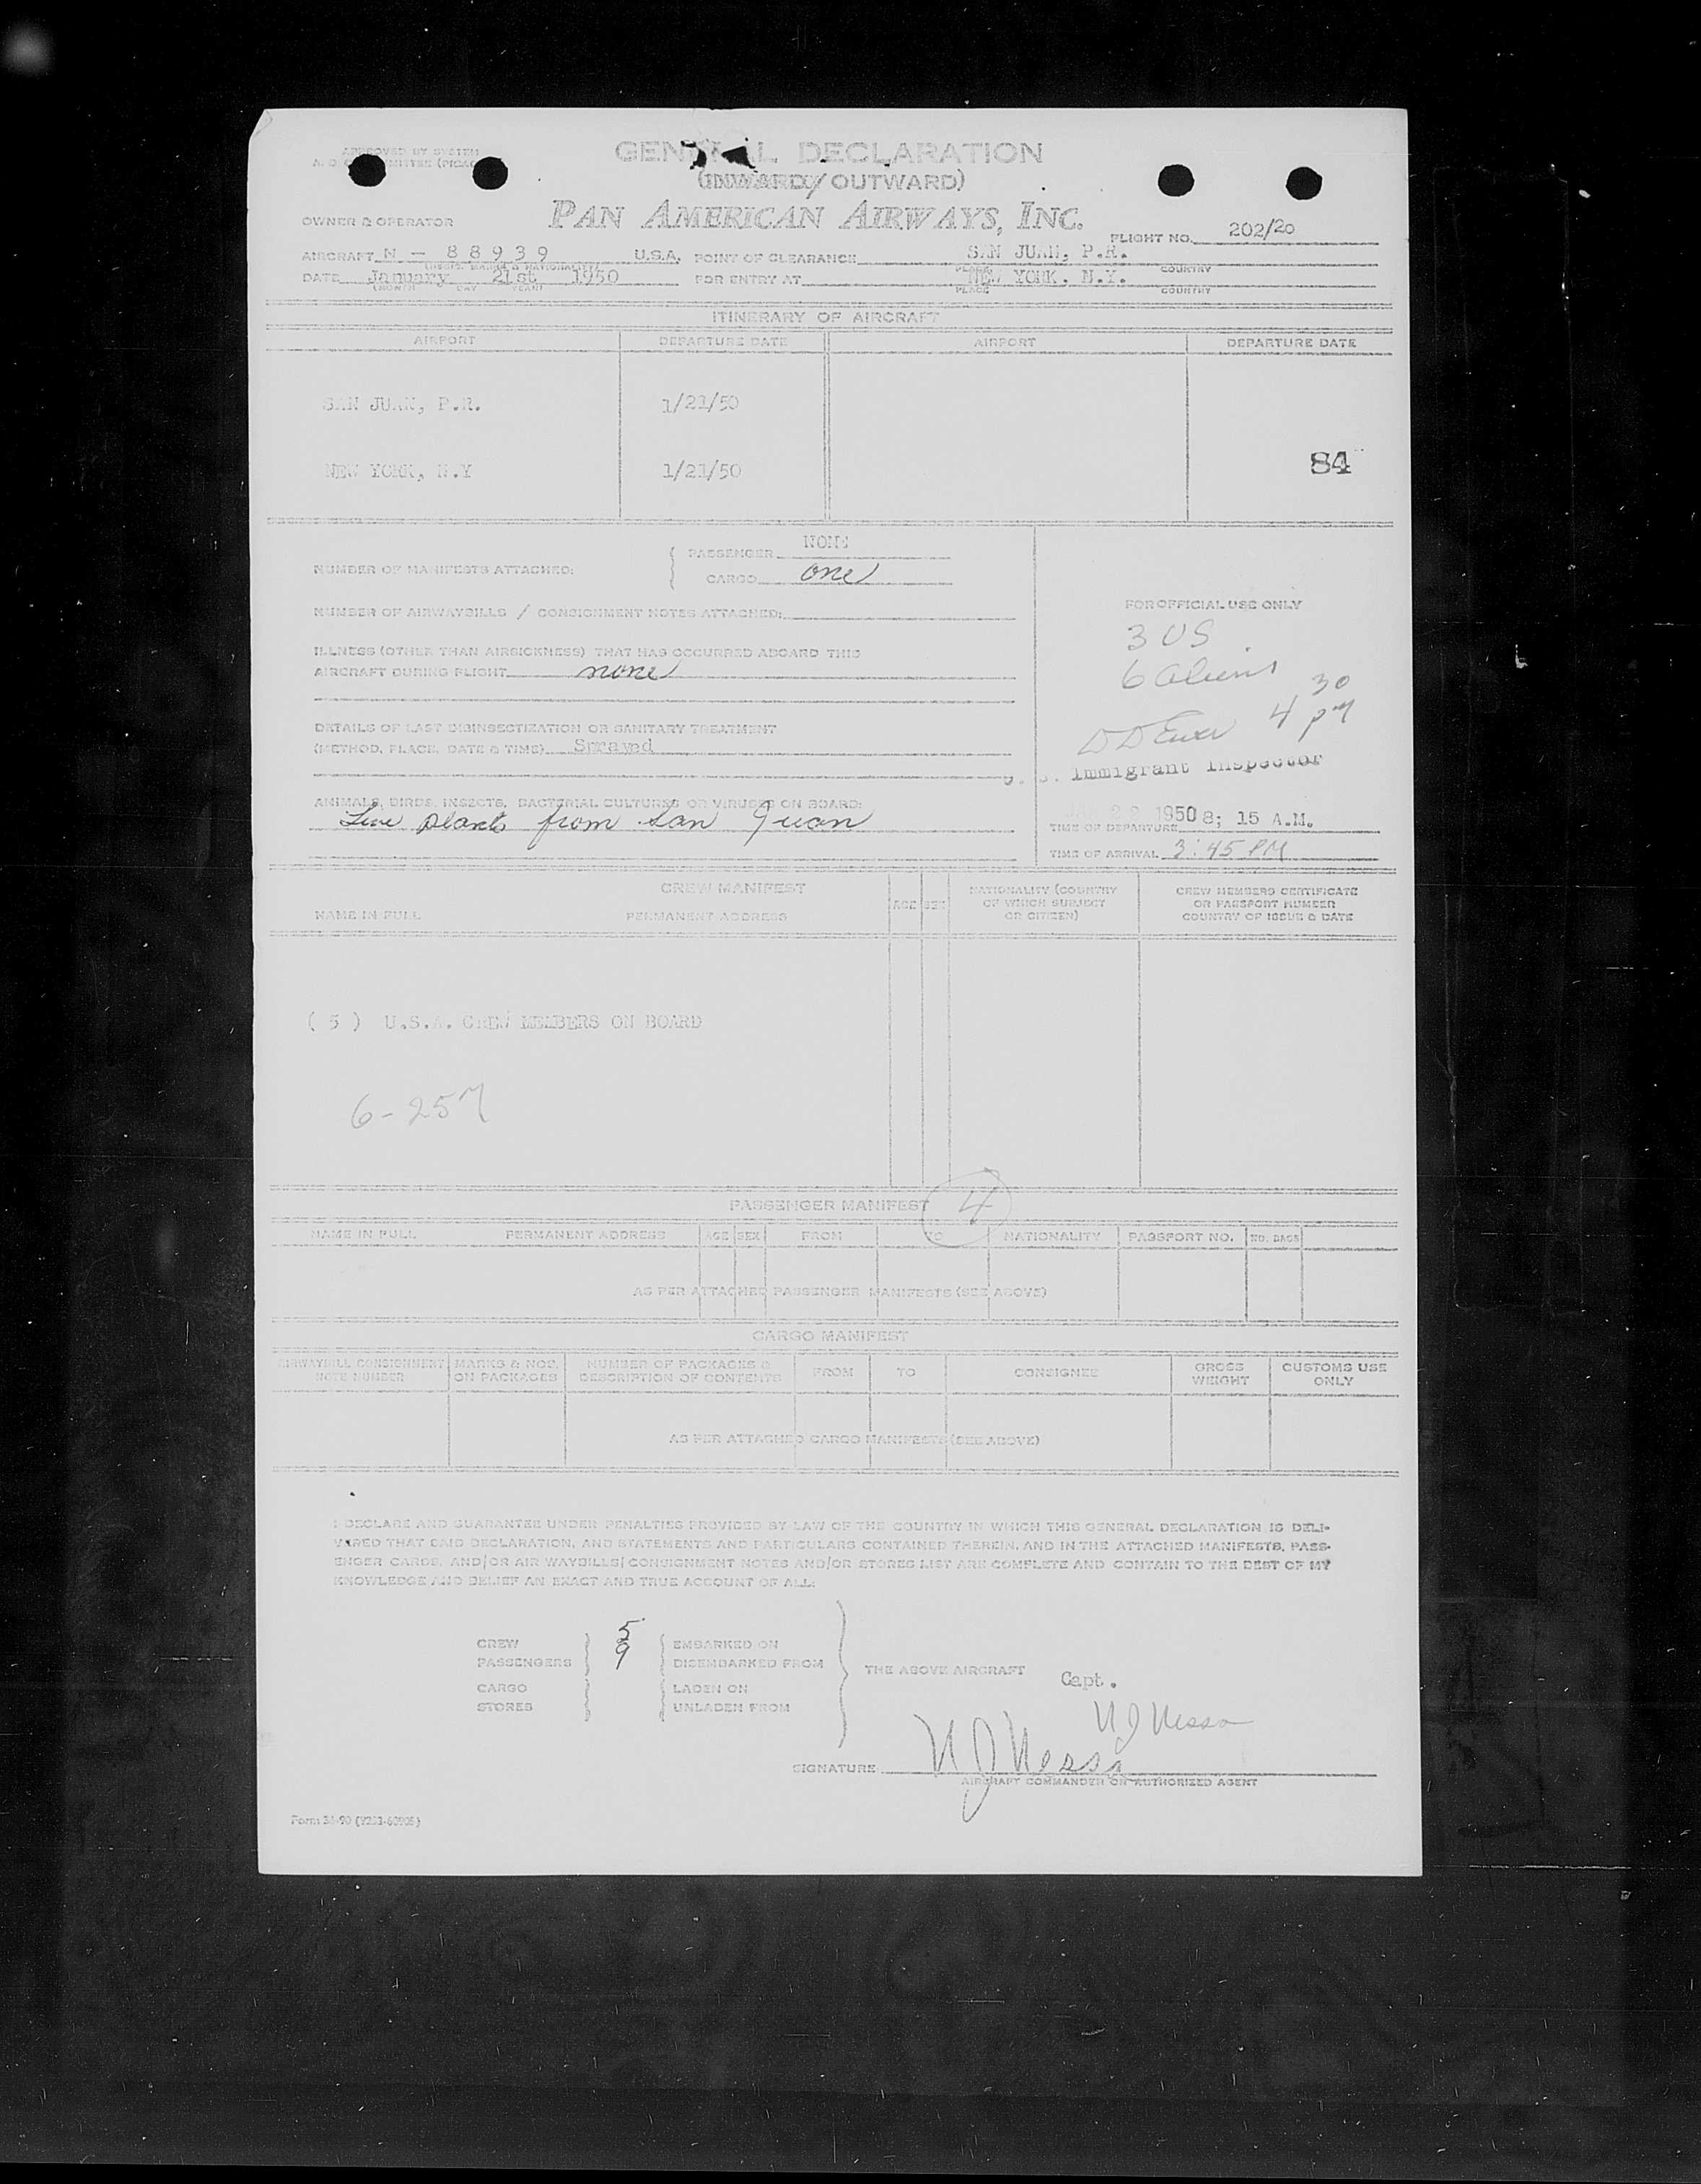 APPROVED BY SYSTEM
GENERAL DECLARATION
(INWARD/OUTWARD)
OWNER & OPERATOR PAN AMERICAN AIRWAYS, INC. FLIGHT NO. 202/20
AIRCRAFT N - 88939 U.S.A. POINT OF CLEARANCE SAN JUAN, P.R.
PLACE COUNTRY
DATE January 21st 1950 FOR ENTRY AT NEW YORK, N.Y.
(MONTH DAY YEAR) PLACE COUNTRY
ITINERARY OF AIRCRAFT
AIRPORT DEPARTURE DATE AIRPORT DEPARTURE DATE
SAN JUAN, P.R. 1/21/50
NEW YORK, N.Y 1/21/50 84
NUMBER OF MANIFESTS ATTACHED: PASSENGER NONE
CARGO one
NUMBER OF AIRWAYBILLS / CONSIGNMENT NOTES ATTACHED:
ILLNESS (OTHER THAN AIRSICKNESS) THAT HAS OCCURRED ABOARD THIS
AIRCRAFT DURING FLIGHT none
DETAILS OF LAST DISINSECTIZATION OR SANITARY TREATMENT
(METHOD, PLACE, DATE & TIME) Sprayed
ANIMALS, BIRDS, INSECTS, BACTERIAL CULTURES OR VIRUSES ON BOARD:
Live plants from San Juan
FOR OFFICIAL USE ONLY
3 US
6 Aliens
4 30 PM
Immigrant Inspector
1950
TIME OF DEPARTURE 8; 15 A.M.
TIME OF ARRIVAL 3:45 PM
CREW MANIFEST
NAME IN FULL PERMANENT ADDRESS AGE SEX NATIONALITY (COUNTRY OF WHICH SUBJECT OR CITIZEN) CREW MEMBERS CERTIFICATE OR PASSPORT NUMBER COUNTRY OF ISSUE & DATE
( 5 ) U.S.A. CREW MEMBERS ON BOARD
6-257
PASSENGER MANIFEST 4
NAME IN FULL PERMANENT ADDRESS AGE SEX FROM TO NATIONALITY PASSPORT NO. NO. BAGS
AS PER ATTACHED PASSENGER MANIFESTS (SEE ABOVE)
CARGO MANIFEST
AIRWAYBILL CONSIGNMENT NOTE NUMBER MARKS & NOS. ON PACKAGES NUMBER OF PACKAGES & DESCRIPTION OF CONTENTS FROM TO CONSIGNEE GROSS WEIGHT CUSTOMS USE ONLY
AS PER ATTACHED CARGO MANIFESTS (SEE ABOVE)
I DECLARE AND GUARANTEE UNDER PENALTIES PROVIDED BY LAW OF THE COUNTRY IN WHICH THIS GENERAL DECLARATION IS DELI-
VERED THAT SAID DECLARATION, AND STATEMENTS AND PARTICULARS CONTAINED THEREIN, AND IN THE ATTACHED MANIFESTS, PASS-
ENGER CARDS, AND/OR AIR WAYBILLS/CONSIGNMENT NOTES AND/OR STORES LIST ARE COMPLETE AND CONTAIN TO THE BEST OF MY
KNOWLEDGE AND BELIEF AN EXACT AND TRUE ACCOUNT OF ALL:
CREW 5 EMBARKED ON
PASSENGERS 9 DISEMBARKED FROM
THE ABOVE AIRCRAFT Capt.
CARGO LADEN ON
STORES UNLADEN FROM
N J Nessa
SIGNATURE N J Nessa
AIRCRAFT COMMANDER OR AUTHORIZED AGENT